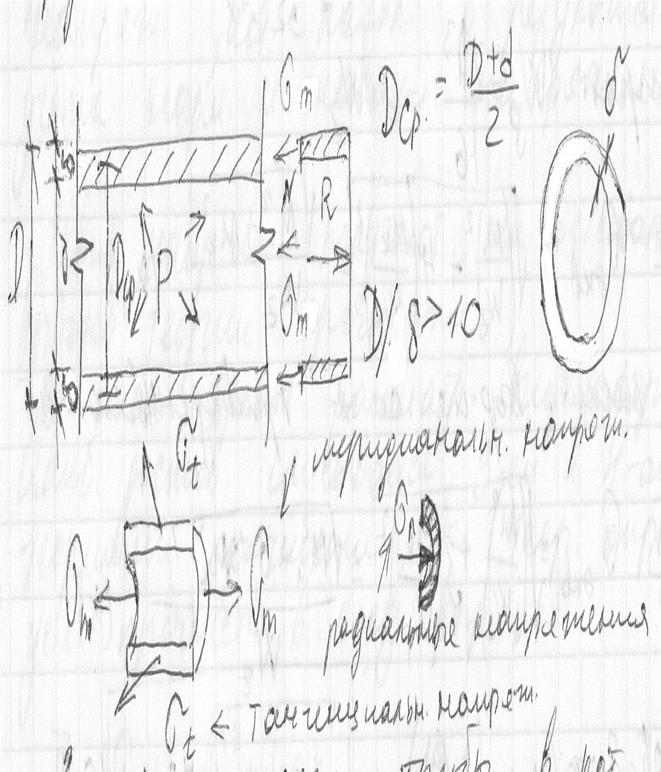 σm
Dср. = D+d / 2
δ
δ
N
R
D
d
Dср
P
σm
D/δ>10
δ
σt
меридианальн. напряж.
σm
σm
σr
радиальные напряжения
σt ← тангенциальн. напряж.